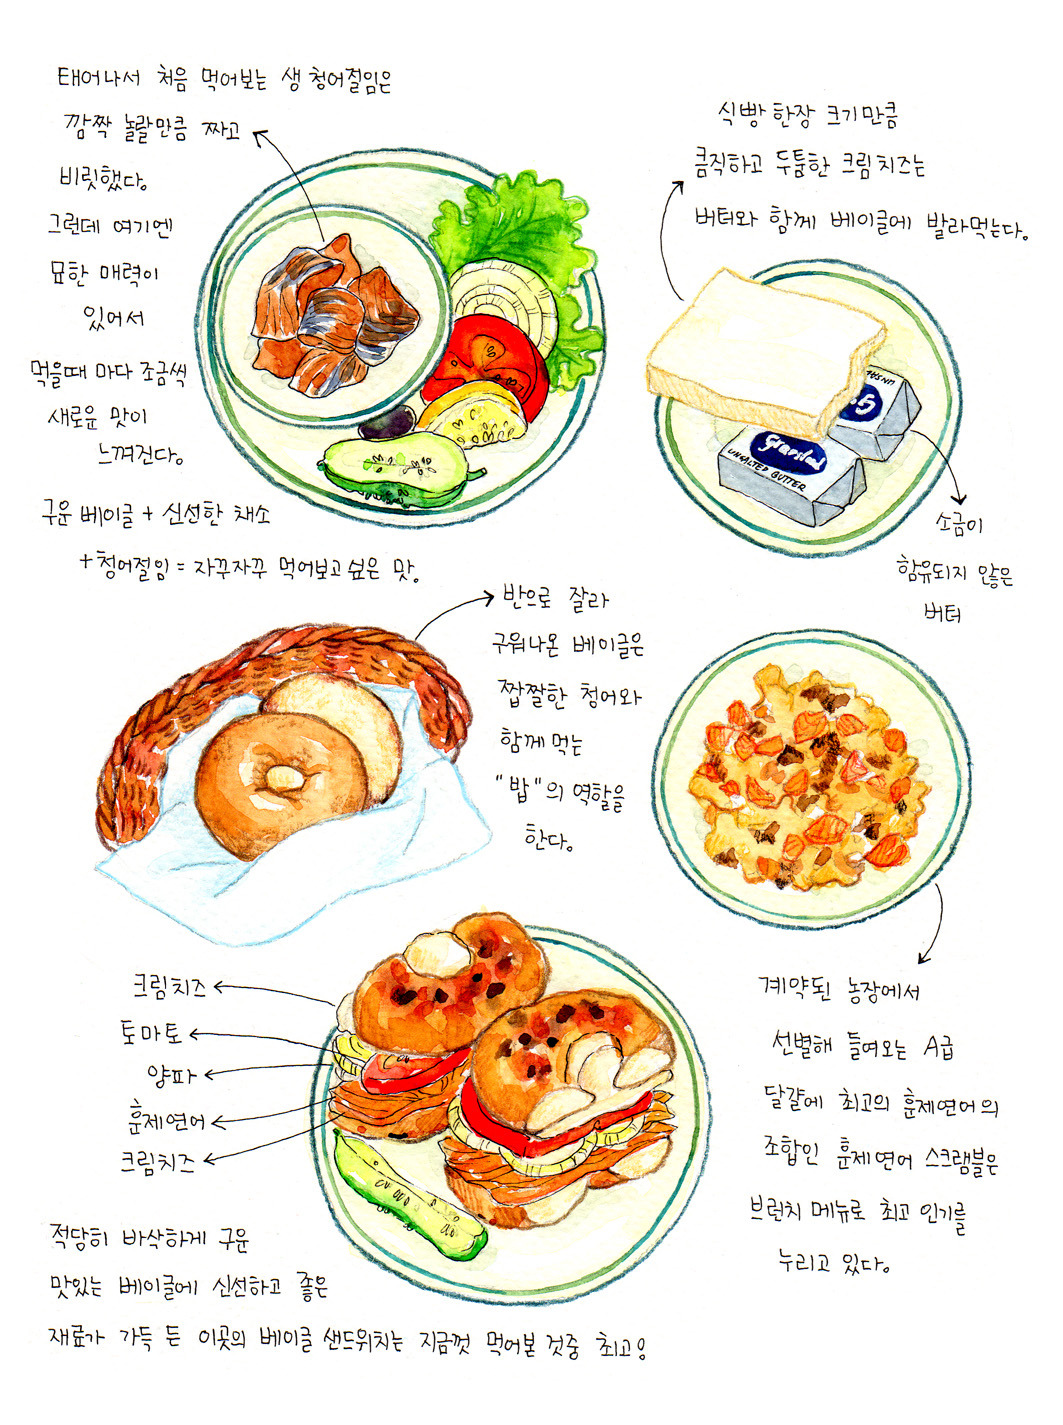 태어나서 처음 먹어보는 생 청어절임은
깜짝 놀랄만큼 짜고
비릿했다.
그런데 여기엔
묘한 매력이
있어서
먹을때 마다 조금씩
새로운 맛이
느껴진다.
구운 베이글 + 신선한 채소
+ 청어절임 = 자꾸자꾸 먹어보고 싶은 맛.
식빵 한장 크기만큼
큼직하고 두툼한 크림치즈는
버터와 함께 베이글에 발라먹는다.
UNSALTED BUTTER
소금이
함유되지 않은
버터
반으로 잘라
구워나온 베이글은
짭짤한 청어와
함께 먹는
"밥"의 역할을
한다.
계약된 농장에서
선별해 들여오는 A급
달걀에 최고의 훈제연어의
조합인 훈제연어 스크램블은
브런치 메뉴로 최고 인기를
누리고 있다.
크림치즈
토마토
양파
훈제연어
크림치즈
적당히 바삭하게 구운
맛있는 베이글에 신선하고 좋은
재료가 가득 든 이곳의 베이글 샌드위치는 지금껏 먹어본 것중 최고!